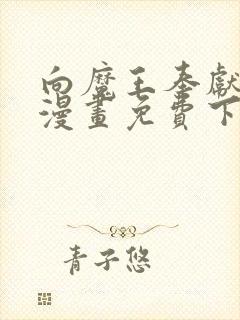 向魔王奉獻
漫畫免費下
青子悠